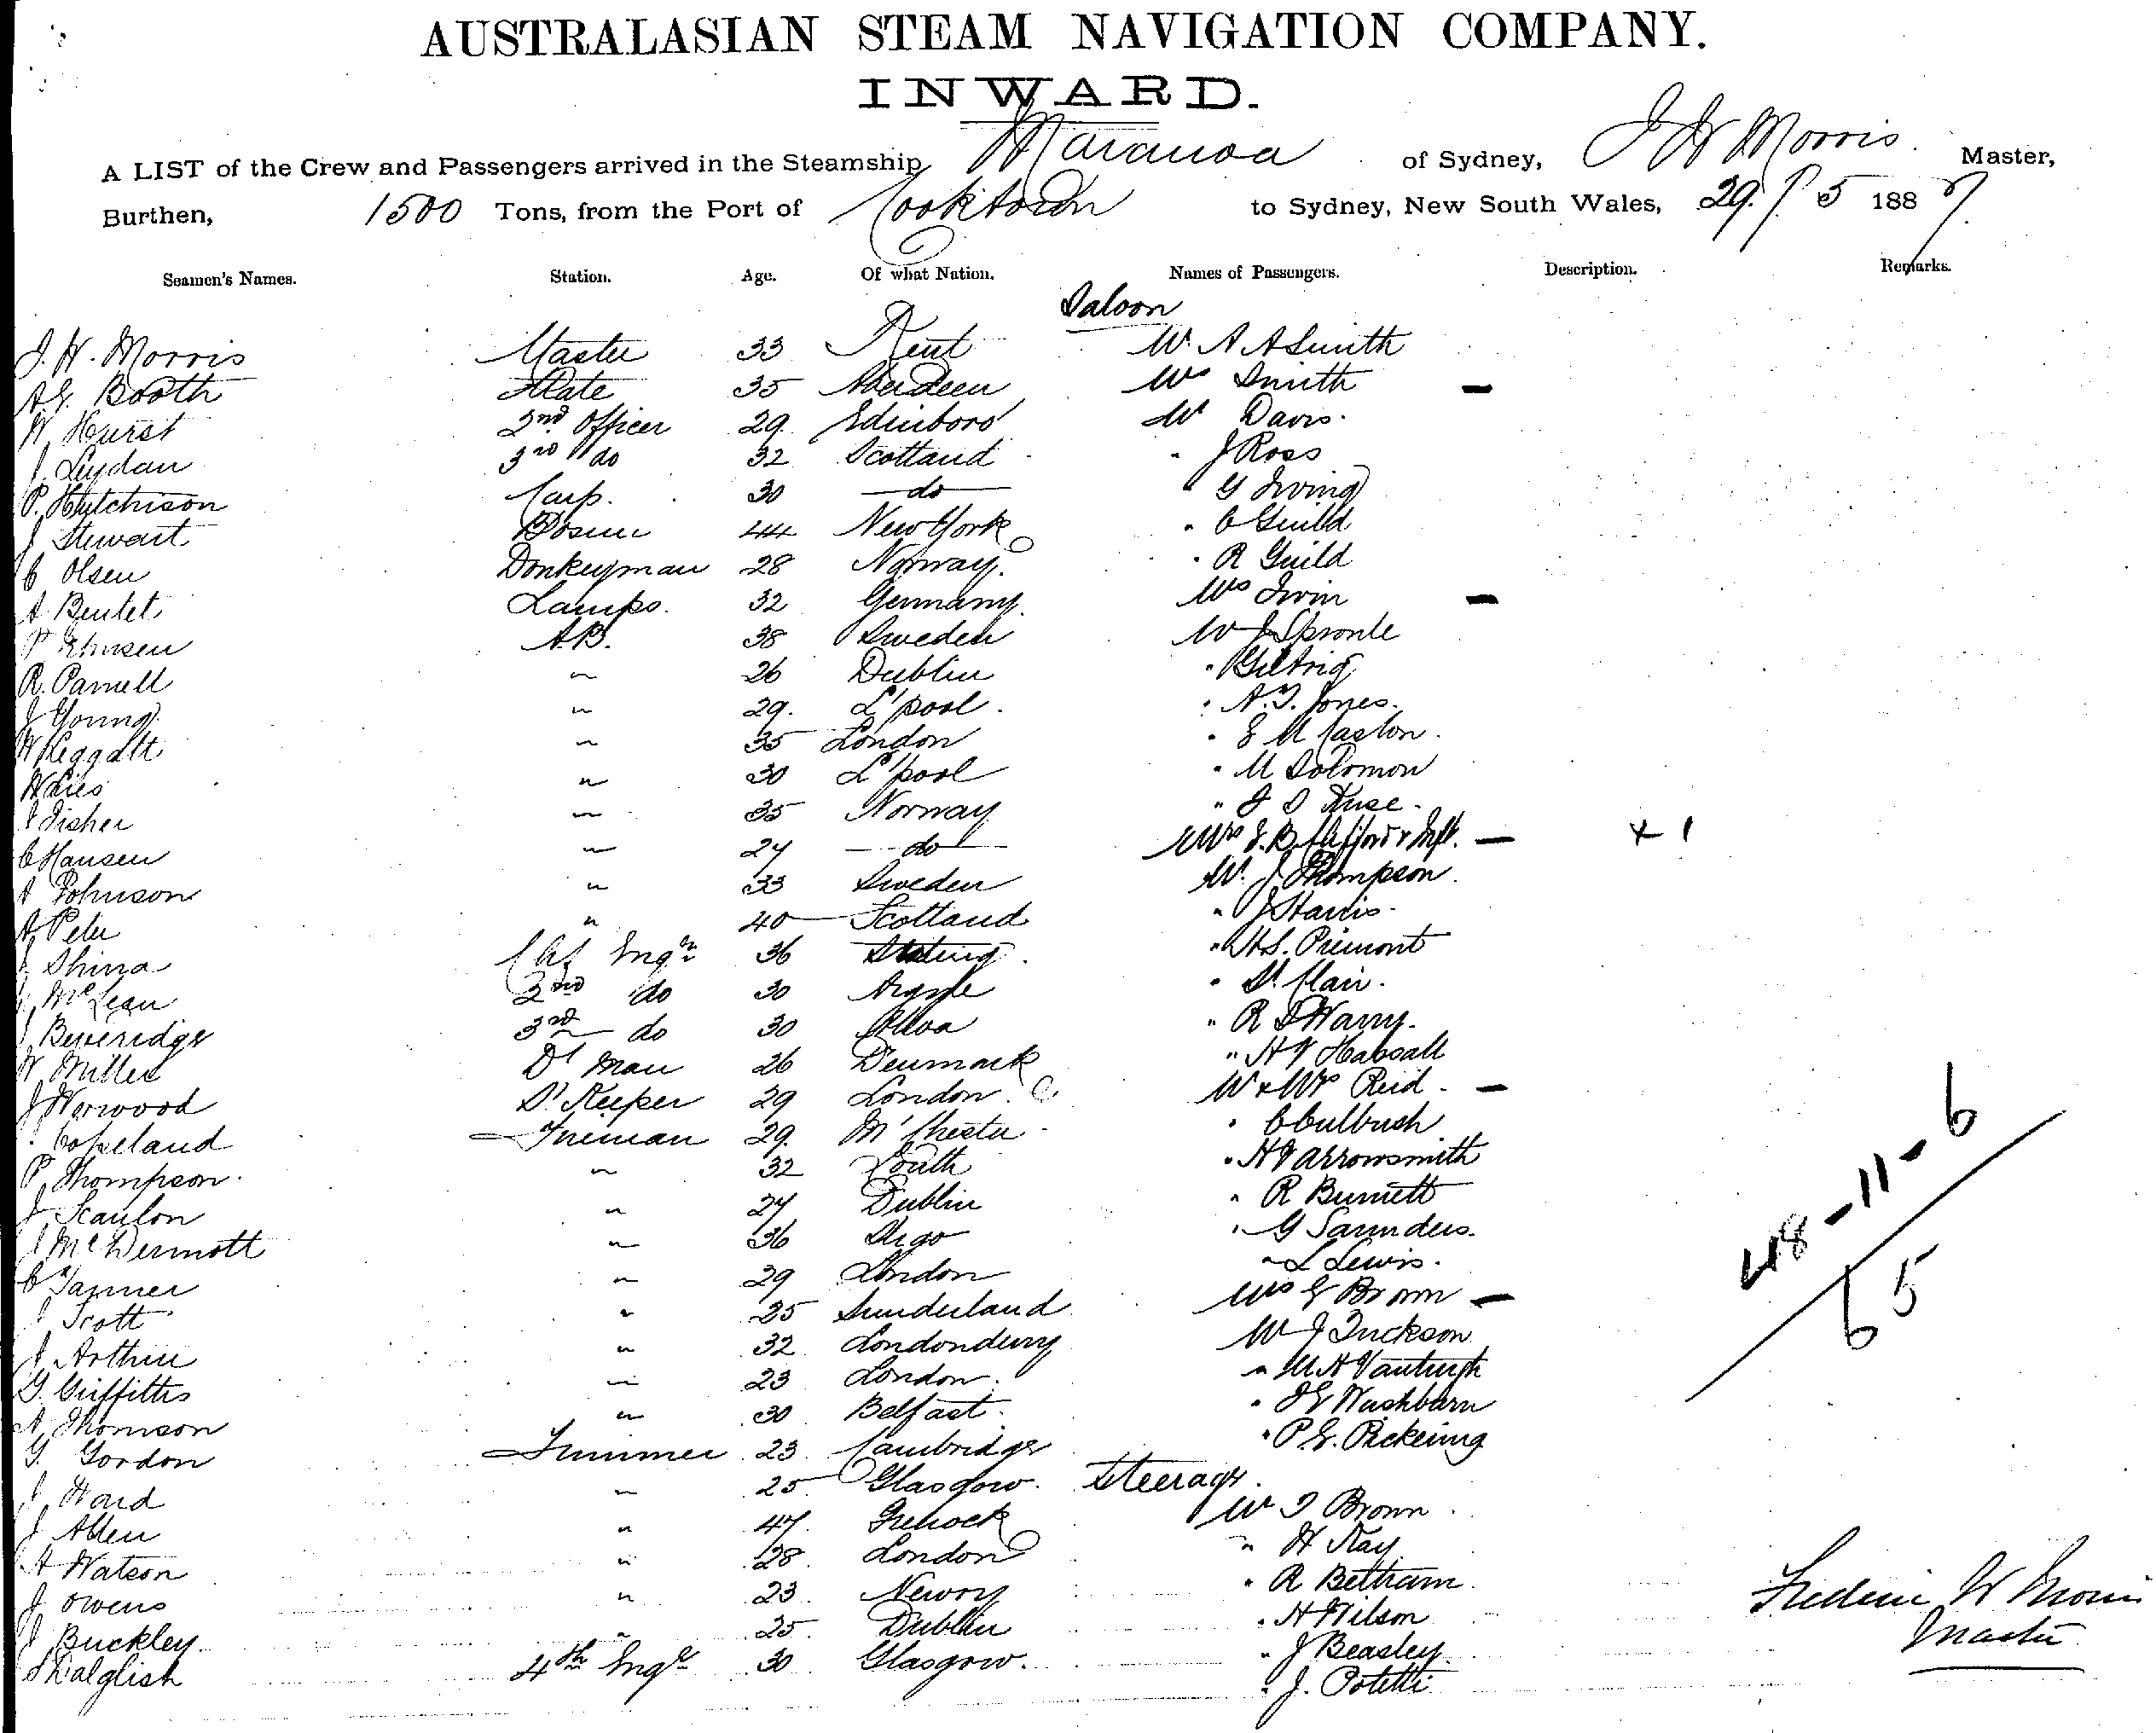 AUSTRALASIAN STEAM NAVIGATION COMPANY.
INWARD.
A LIST of the Crew and Passengers arrived in the Steamship Maranoa of Sydney, J H Morris Master,
Burthen, 1500 Tons, from the Port of Cooktown to Sydney, New South Wales, 29/5 1887
Seamen's Names. Station. Age. Of what Nation. Names of Passengers. Description. Remarks.
Saloon
J. H. Morris Master 33 Kent W. A A Smith
A G. Booth Mate 35 Aberdeen Mrs Smith —
W Hurst 2nd Officer 29 Edinboro' Mr Davis.
J. Leydan 3rd do 32 Scotland " J Ross
P. Hutchison Carp. 30 — do — " G Irving
J Stewart Bosun 44 New York " C Guild
C Olsen Donkeyman 28 Norway. " R Guild
A Bentet Lamps. 32 Germany. Mrs Irwin —
A.B. 38 Sweden
R. Parnell " 26 Dublin "
J Young " 29. L'pool. " A. T. Jones.
" 35 London
" 30 L'pool " M Solomon
J Fisher " 35 Norway "
C Hansen " 24 — do — Mrs — x 1
A Johnson " 33 Sweden Mr. J Thompson.
A Peter " 40 Scotland " J Harris.
J Shirra 1st Engr 36 Stirling. "
J McLean 2nd do 30 Argyle "
J Beveridge 3rd do 30 Alloa "
W Miller Dk Man 26 Denmark "
J Norwood St Keeper 29 London. Mr & Mrs Reid. —
Copeland Fireman 29. M'chester "
P. Thompson. " 32 Louth " Arrowsmith
J Scanlon " 24 Dublin " R Burnett
J McDermott " 36 " G Saunders.
C Tanner " 29 London " L Lewis.
J Scott " 25 Sunderland Mrs G Brown —
J Arthur " 32 Londonderry Mr J Tuckson
G. Griffiths " 23 London. "
A Thomson " 30 Belfast. " J E Washburn
G. Gordon Trimmer 23 Cambridge " P. E. Pickering
48 - 11 - 6
65
Steerage.
J Ward " 25 Glasgow. Mr T Brown.
J Allen " 47. Greenock " H Kay
A Watson " 28. London " R Beltram.
J Owens " 23. Newry " H Wilson
J Buckley " 25. Dublin " J Beasley
Dalglish 4th Engr 30 Glasgow. " J. Potetti
Master